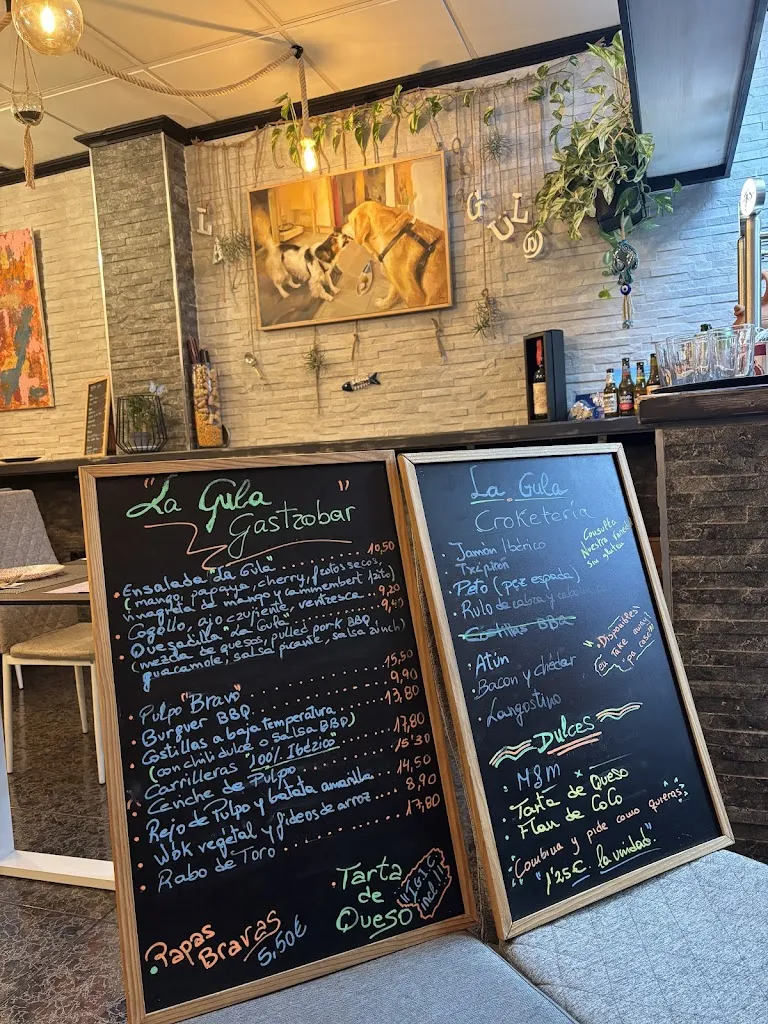 LA
GÜL@
"La Gula"
Gastrobar
Ensalada "La Gula" ... 10,50
(mango, papaya, cherry, frutos secos,
vinagreta de mango y cammembert frito)
Cogollo, ajo crujiente, ventresca. 9,20
Quesadilla "La Gula" ... 9,40
(mezcla de quesos, pulled pork BBQ,
guacamole, salsa picante, salsa zúnch)
Pulpo "Bravo" ... 15,50
Burguer BBQ ... 9,90
Costillas a baja temperatura ... 13,80
(con chili dulce o salsa BBQ)
Carrilleras "100% Ibérico" ... 17,80
Ceviche de Pulpo ... 15'30
Rejo de Pulpo y batata amarilla ... 14,50
Wok vegetal y fideos de arroz ... 8,90
Rabo de Toro ... 17,80
Papas
Bravas
5,50€
Tarta
de
Queso
"IGIC
incl!!"
La Gula
Croketería
Consulta
Nuestra
sin gluten
· Jamón Ibérico
· Txipirón
· Peto (pez espada)
· Rulo de cabra y
Costillas BBQ
· Atún
· Bacon y chédar
· Langostino
"Disponibles
en take away
pa casa"
- Dulces -
· M&M
· Tarta de Queso
· Flan de CoCo
"Combina y pide como quieras"
"1'25€ la unidad"